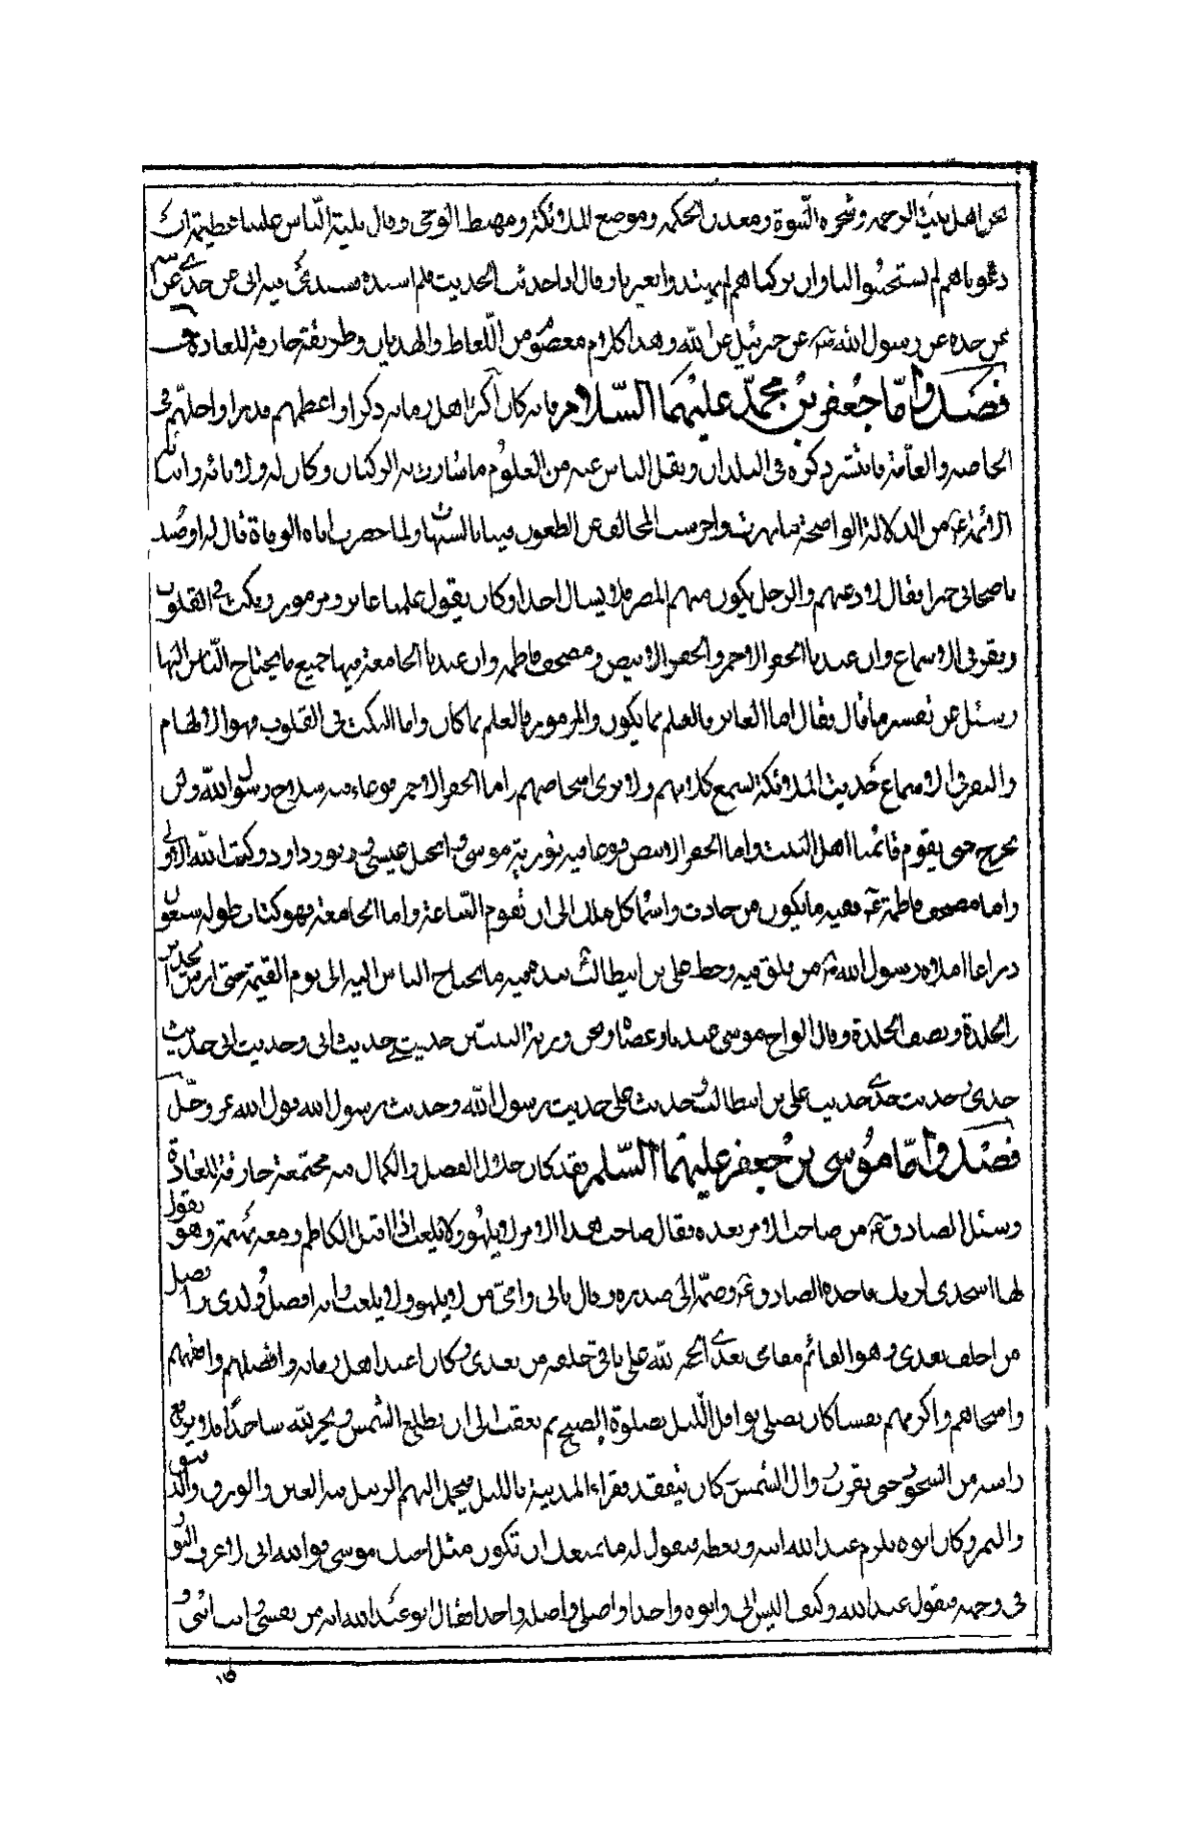 نحن اهل بيت الرحمه وشجره النبوة ومعدن الحكمه وموضع الملائكة ومهبط الوحى وقال بلية الناس علينا عظيمة ان
دعوناهم لم يستجيبوا لنا وان تركناهم لم يهتدوا بغيرنا وقال اذا حدثت الحديث فلم اسنده فسندى فيه ابى عن جدى عن
عن جده عن رسول الله عن جبرئيل عن الله وهذا كلام معصوم من اللغاط والهذيان وطريقة خارقة للعادة
فصل واما جعفر بن محمد عليهما السلام فانه كان اكثر اهل زمانه ذكرا واعظمهم قدرا واجلهم فى
الخاصه والعامة فانتشر ذكره فى البلدان ونقل الناس عنه من العلوم ما سارت به الركبان وكان له ولابائه وابنائه
الائمة من الدلالة الواضحة ما بهرت واخرست المخالف عن الطعون فيها بالشبهات ولما حضرت اباه الوفاة قال له اوصيك
باصحابى خيرا فقال لادعهم والرجل يكون منهم المصر فلا يسال احدا وكان يقول علمنا غابر ومزمور ونكت فى القلوب
ونقر فى الاسماع وان عندنا الجفر الاحمر والجفر الابيض ومصحف فاطمه وان عندنا الجامعة فيها جميع ما يحتاج الناس اليها
وسئل عن تفسير ما قال فقال اما الغابر فالعلم بما يكون والمزمور فالعلم بما كان واما النكت فى القلوب فهو الالهام
والنقر فى الاسماع حديث الملائكة نسمع كلامهم ولا نرى اشخاصهم واما الجفر الاحمر فوعاء فيه سلاح رسول الله ولن
يخرج حتى يقوم قائمنا اهل البيت واما الجفر الابيض فوعا فيه تورية موسى وانجيل عيسى وزبور داود وكتب الله الاولى
واما مصحف فاطمة ففيه ما يكون من حادث واسما كل ملك الى ان تقوم الساعة واما الجامعة فهو كتاب طوله سبعون
دراعا املاه رسول الله من فلق فيه وخط على بن ابيطالب بيده فيه ما يحتاج الناس اليه الى يوم القيمة حتى ارش الخدش
والجلدة ونصف الجلدة وقال الواح موسى عندنا وعصاه ونحن ورثة النبيين حديثى حديث ابى وحديث ابى حديث
جدى وحديث جدى حديث على بن ابيطالب وحديث على حديث رسول الله وحديث رسول الله قول الله عز وجل
فصل واما موسى بن جعفر عليهما السلم فقد كان خلال الفضل والكمال فيه مجتمعة خارقة للعادة
وسئل الصادق من صاحب الامر بعده فقال صاحب هذا الامر لا يلهو ولا يلعب اذا اقبل الكاظم ومعه بهمة وهو يقول
لها اسجدى لربك فاخذه الصادق وضمه الى صدره وقال بابى وامى من لا يلهو ولا يلعب وانه افضل ولدى وافضل
من اخلف بعدى وهو القائم مقامى بعدى الحجه لله على باقى خلقه من بعدى وكان اعبد اهل زمانه وافضلهم وافقههم
واسخاهم واكرمهم نفسا كان يصلى نوافل الليل بصلوة الصبح ثم يعقب الى ان يطلع الشمس ويخر لله ساجدا فلا يرفع
راسه من السجود حتى يقرب زوال الشمس كان يتفقد فقراء المدينة بالليل فيحمل اليهم الزبيل فيه العين والورق والدقيق
والتمر وكان ابوه يلوم عبد الله ابنه ويعظه فيقول له ما يمنعك ان تكون مثل اخيك موسى فوالله انى لاعرف النور
فى وجهه فيقول عبد الله وكيف اليس ابى وابوه واحدا واصلى واصله واحدا فقال ابو عبد الله انه من نفسى وانت ابنى